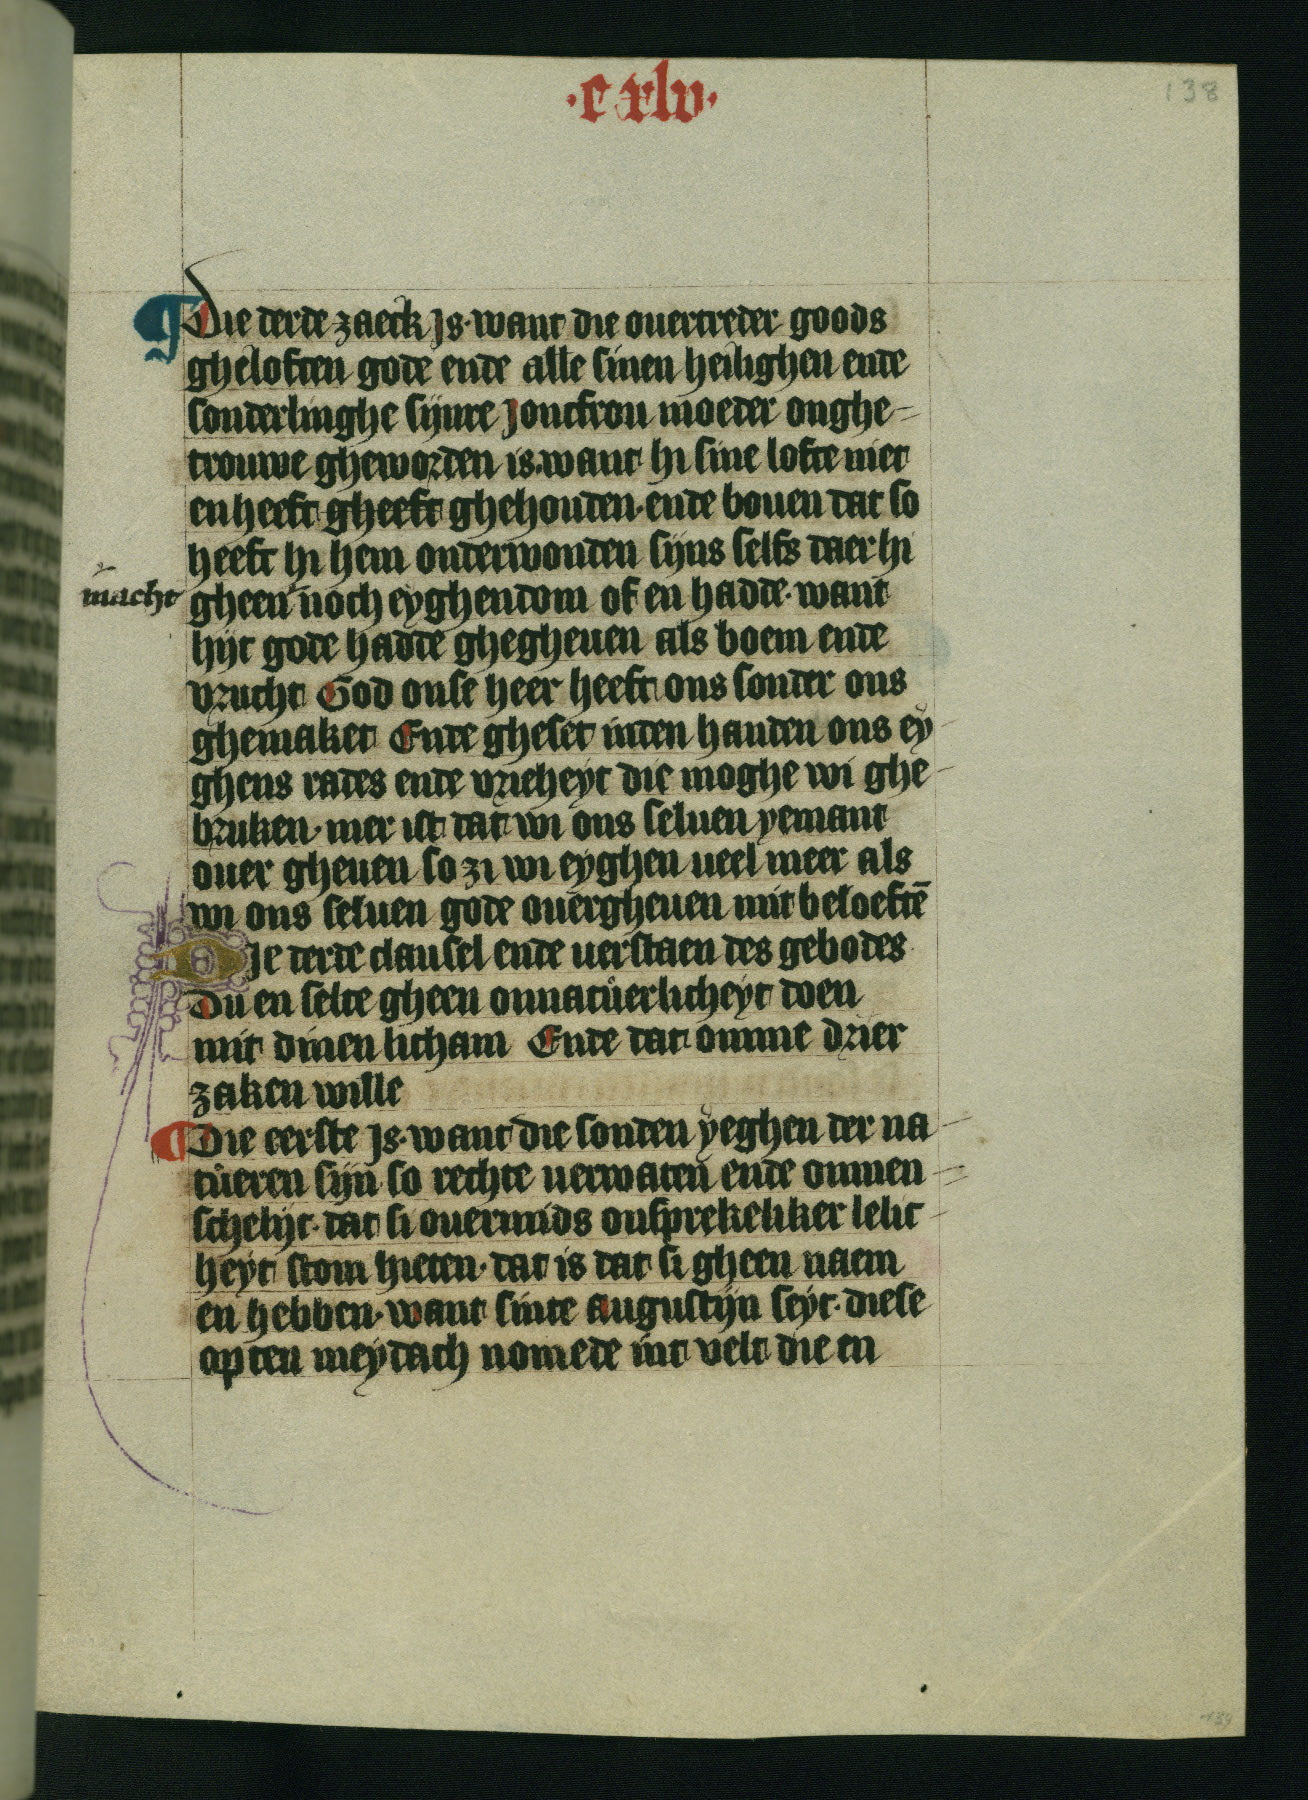 ·c xlv·
138
Die derde zaeck Js·want die ouertreder goods
gheloften gode ende alle sinen heilighen ende
sonderlinghe sijnre Joncfrou moeder onghe-
trouwe gheworden is.want hi sine lofte niet
en heeft gheeft ghehouden·ende bouen dat so
heeft hi hem onderwonden sijns selfs daer hi
macht
gheen noch eyghendom of en hadde·want
hijt gode hadde ghegheuen als boem ende
vrucht God onse heer heeft ons sonder ons
ghemaket Ende gheset inden handen ons ey-
ghens rades ende vrieheyt die moghe wi ghe-
bruken·mer ist dat wi ons seluen yemant
ouer gheuen so zi wi eyghen ueel meer als
wi ons seluen gode ouergheuen mit beloeftē
DJe derde clausel ende uerstaen des gebodes
Du en selte gheen onnatuerlicheyt doen
mit dinen licham Ende dat omme drier
zaken wille
Die eerste Js·want die sonden yeghen der na-
tueren sijn so rechte uerwaten ende onmen-
schelijt·dat si ouermids onsprekeliker lelic-
heyt stom hieten·dat is dat si gheen naem
en hebben·want sinte augustijn seyt·diese
op ten meydach nomede int velt die en